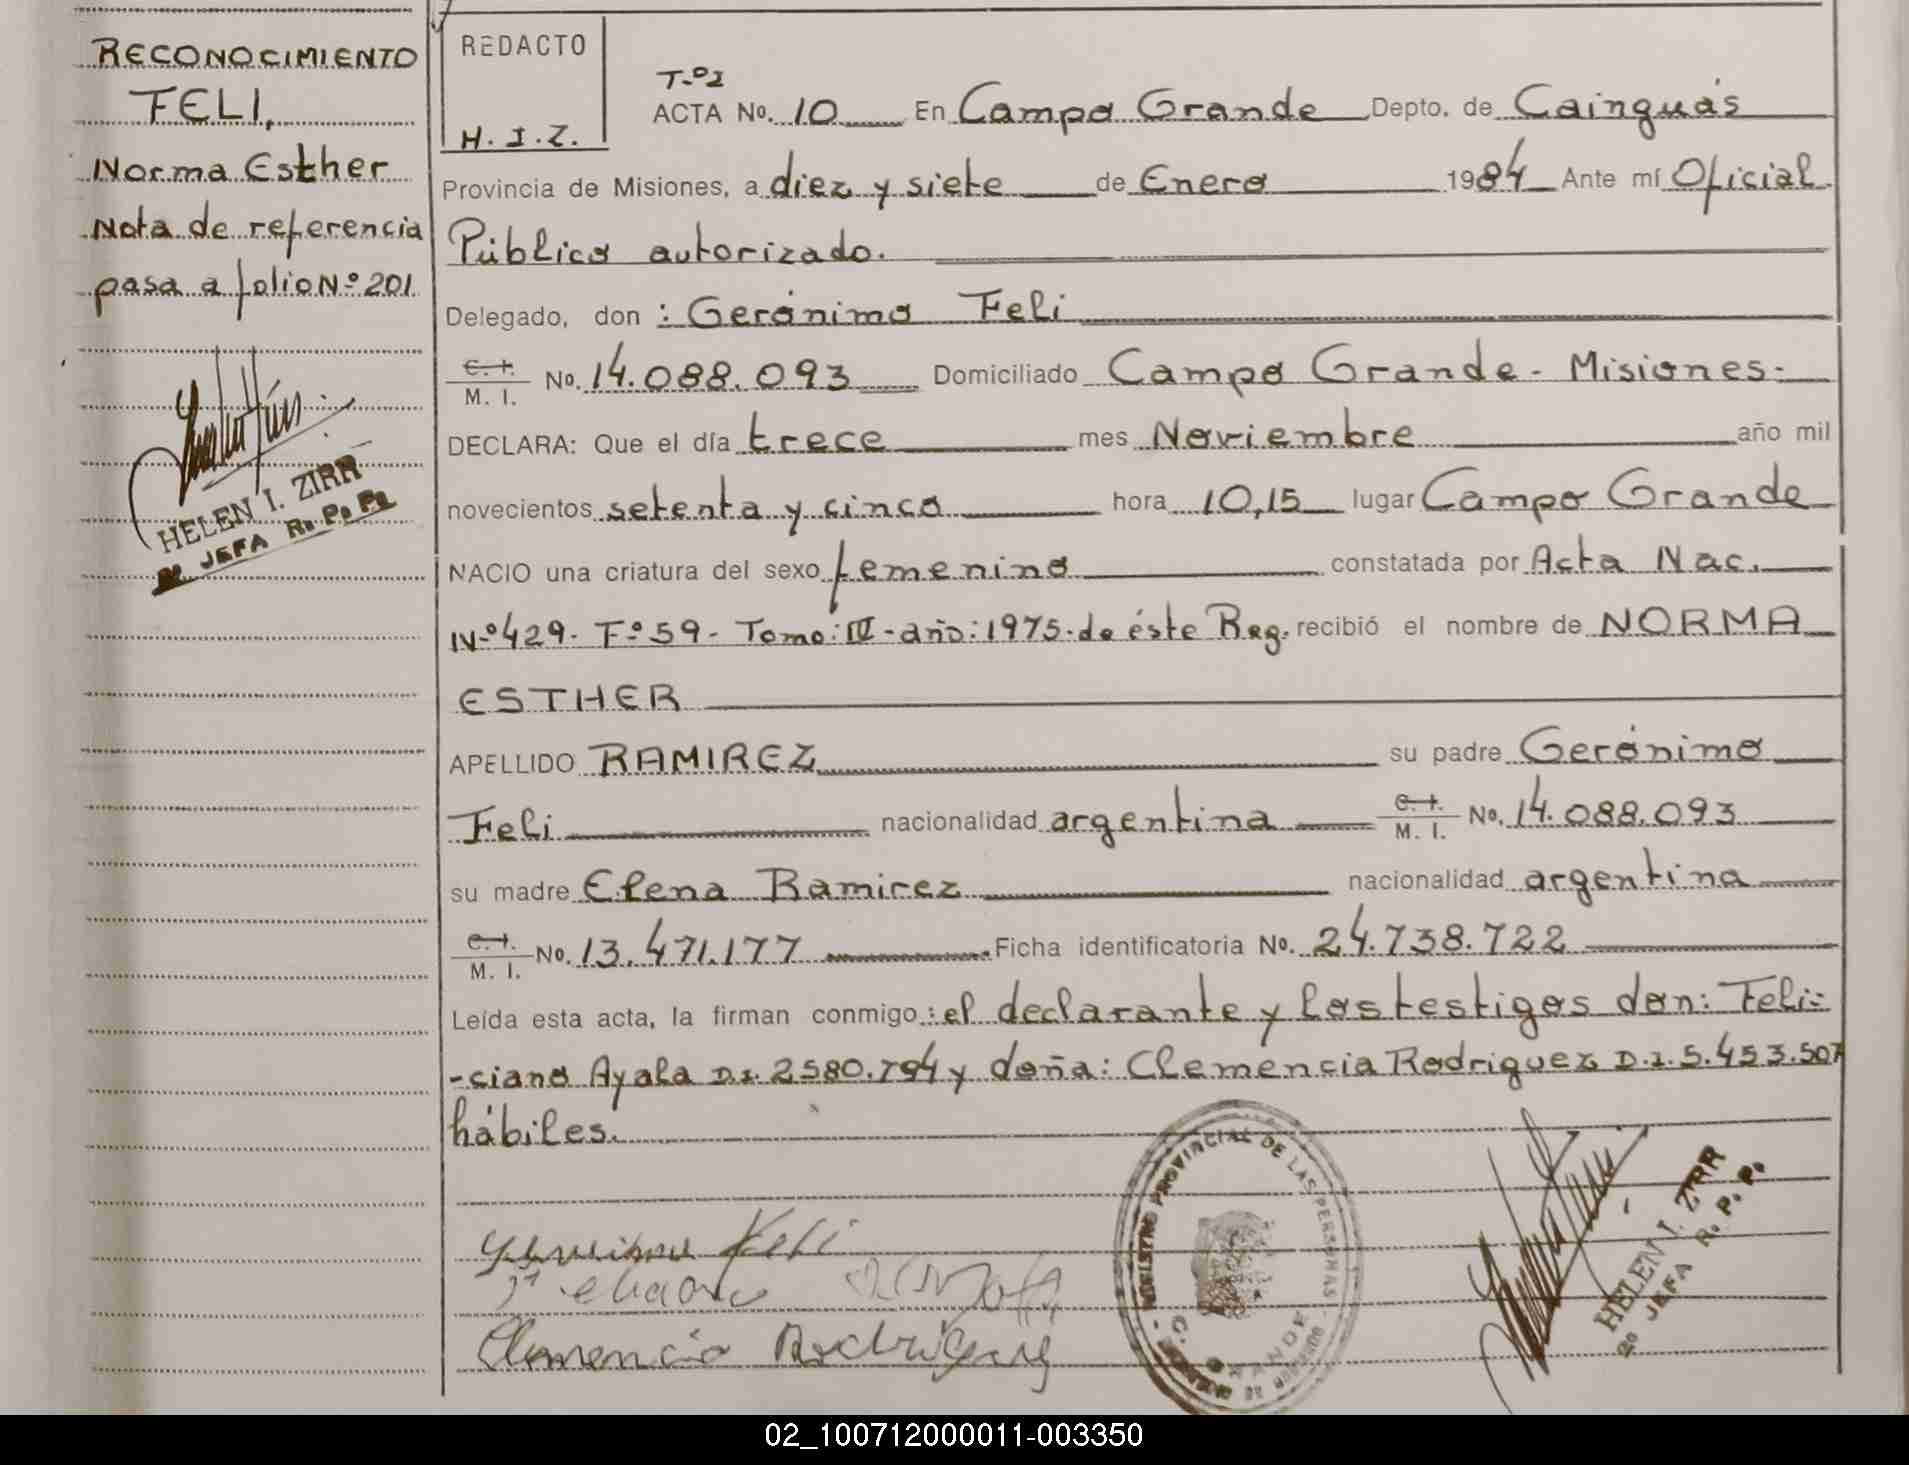 RECONOCIMIENTO
FELI,
Norma Esther
Nota de referencia
pasa a folio Nº 201
HELEN I. ZIRR
JEFA R. P. P.
REDACTO
H. I. Z.
T-º I
ACTA No. 10 En Campo Grande Depto. de Cainguás
Provincia de Misiones, a diez y siete de Enero 1984 Ante mí Oficial
Público autorizado.
Delegado, don : Gerónimo Feli
C. I. M. I. No. 14.088.093 Domiciliado Campo Grande - Misiones.
DECLARA: Que el día trece mes Noviembre año mil
novecientos setenta y cinco hora 10,15 lugar Campo Grande
NACIO una criatura del sexo femenino constatada por Acta Nac.
Nº 429 - Fº 59 - Tomo: III - año: 1975 - de éste Reg. recibió el nombre de NORMA
ESTHER
APELLIDO RAMIREZ su padre Gerónimo
Feli nacionalidad argentina C. I. M. I. No. 14.088.093
su madre Elena Ramirez nacionalidad argentina
C. I. M. I. No. 13.471.177 Ficha identificatoria No. 24.738.722
Leída esta acta, la firman conmigo : el declarante y los testigos don: Feli-
-ciano Ayala D.I. 2580.794 y doña: Clemencia Rodriguez D.I. 5.453.507
hábiles.
Feli
Clemencia Rodriguez
REGISTRO PROVINCIAL DE LAS PERSONAS
C. GRANDE
HELEN I. ZIRR
JEFA R. P. P.
02_100712000011-003350